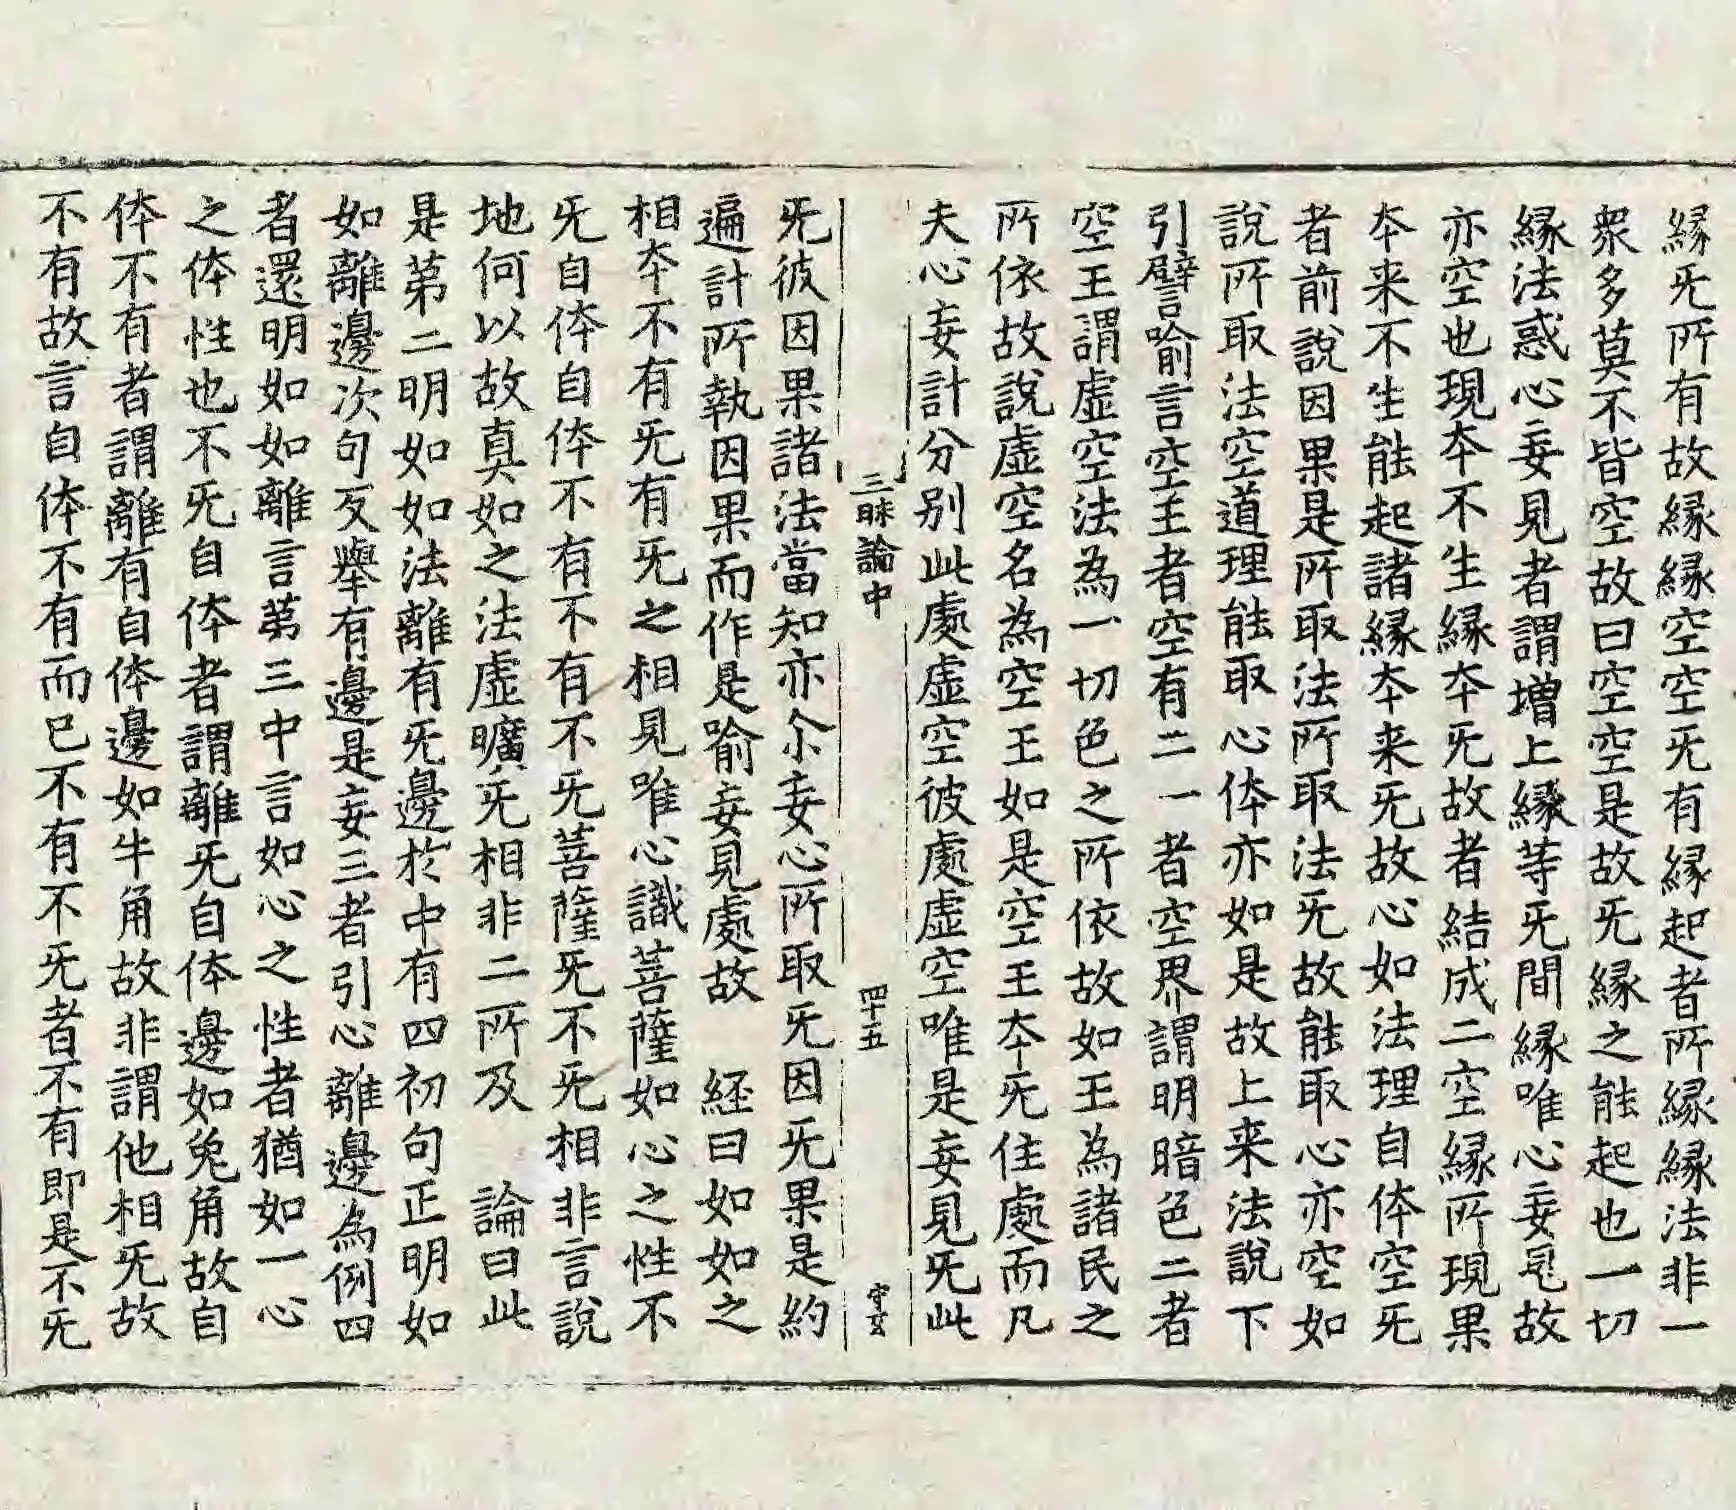 縁无所有故縁縁空空无有縁起者所縁縁法非一
衆多莫不皆空故曰空空是故无縁之能起也一切
縁法惑心妄見者謂増上縁等无間縁唯心妄見故
亦空也現夲不生縁夲无故者結成二空縁所現果
夲来不生能起諸縁夲来无故心如法理自体空无
者前說因果是所取法所取法无故能取心亦空如
說所取法空道理能取心体亦如是故上来法說下
引譬喻言空王者空有二一者空界謂明暗色二者
空王謂虛空法為一切色之所依故如王為諸民之
所依故說虛空名為空王如是空王夲无住處而凡
夫心妄計分別此處虛空彼處虛空唯是妄見无此
三昧論中　四十五
无彼因果諸法當知亦尒妄心所取无因无果是約
遍計所執因果而作是喻妄見處故　経曰如如之
相夲不有无有无之相見唯心識菩薩如心之性不
无自体自体不有不有不无菩薩无不无相非言說
地何以故真如之法虛曠无相非二所及　論曰此
是苐二明如如法離有无邊於中有四初句正明如
如離邊次句反舉有邊是妄三者引心離邊為例四
者還明如如離言苐三中言如心之性者猶如一心
之体性也不无自体者謂離无自体邊如兔角故自
体不有者謂離有自体邊如牛角故非謂他相无故
不有故言自体不有而已不有不无者不有即是不无